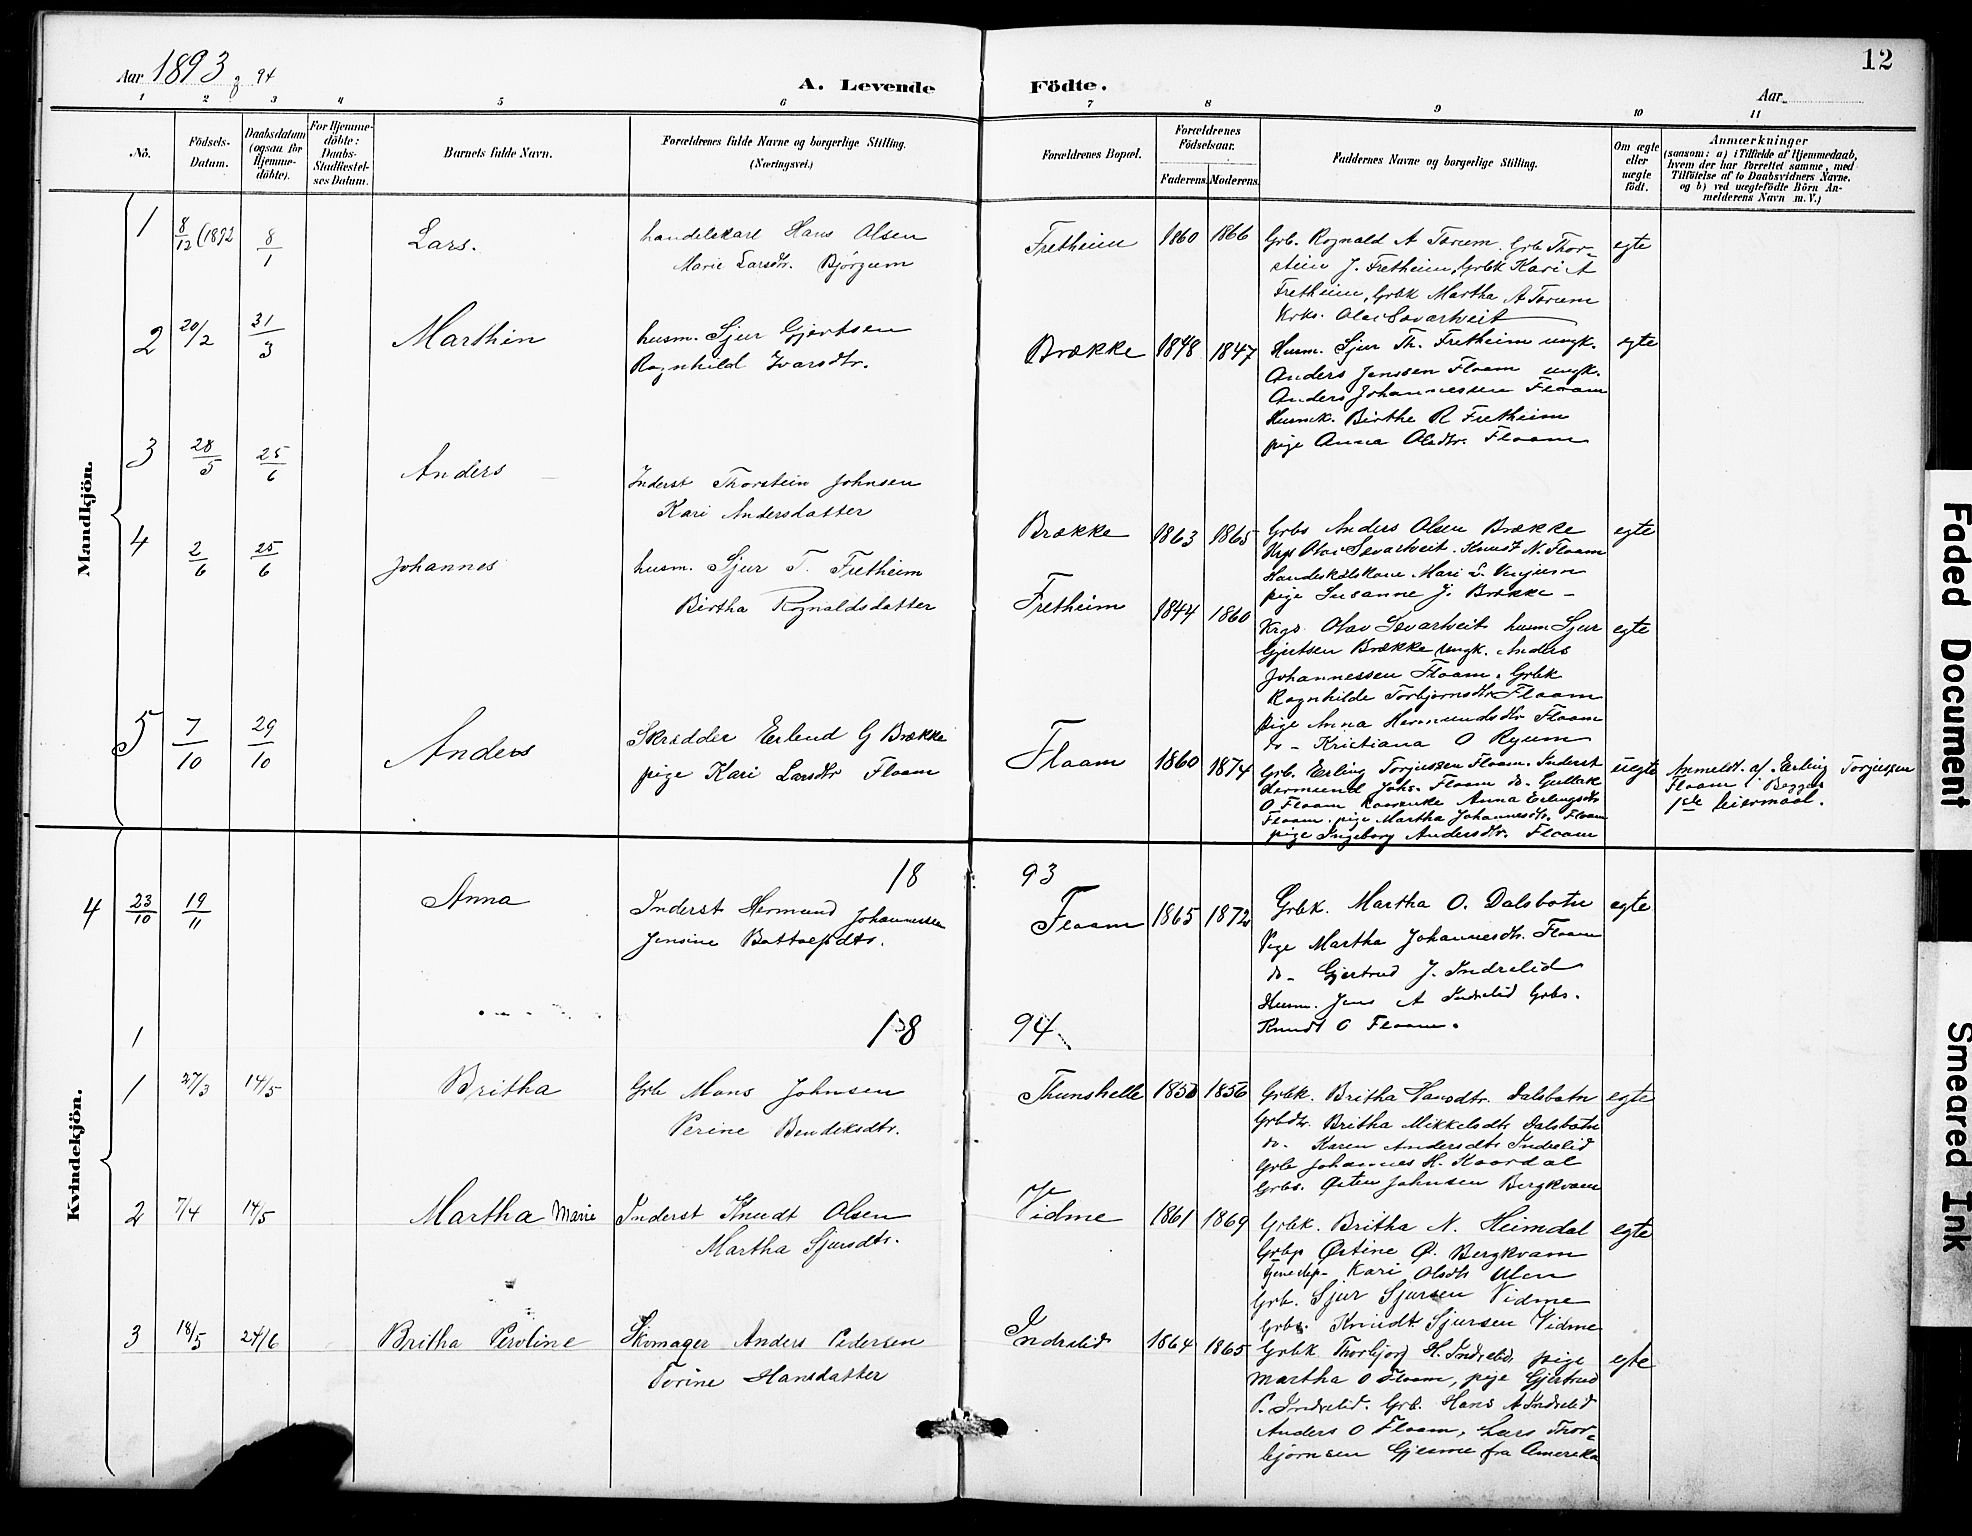 Aar 1893 og 94
A. Levende Födte.
12
Aar
1 2 3 4 5 6 7 8 9 10 11
No.
Födsels-Datum.
Daabsdatum (ogsaa for Hjemme-döbte).
For Hjemme-döbte: Daabs-Stadfæstel-ses Datum.
Barnets fulde Navn.
Forældrenes fulde Navne og borgerlige Stilling. (Næringsvei.)
Forældrenes Bopæl.
Forældrenes Födselsaar.
Faderens. Moderens.
Faddernes Navne og borgerlige Stilling.
Om ægte eller uægte födt.
Anmærkninger
(saasom: a) i Tilfælde af Hjemmedaab, hvem der har forrettet samme, med Tilföielse af to Daabsvidners Navne, og b) ved uægtefödte Börn An-melderens Navn m. V.)
Mandkjön.
1 8/12 (1892 8/1 Lars. handelskarl Hans Olsen
Marie Larsdtr. Bjørgum
Fretheim 1860 1866 Grb. Rognald A Tørum. Grb Thor-
stein J. Fretheim, Grbk Kari A
Fretheim, Grbk Martha A Tørum
Krks. Olai Savartveit
egte
2 20/2 31/3 Marthin husm. Sjur Gjertsen
Ragnhild Ivarsdtr.
Brække 1848 1847 Husm. Sjur Th. Fretheim ungk.
Anders Jenssen Flaam ungk.
Anders Johannessen Flaam
Husmk. Birthe R Fretheim
pige Anna Olsdtr. Flaam
egte
3 28/5 25/6 Anders Inderst Thorstein Johnsen
Kari Andersdatter
Brække 1863 1865 Grbs Anders Olsen Brække
Olai Savartveit. Knud N. Flaam
Mari L. Vinjum
pige Susanne J. Brække -
egte
4 2/6 25/6 Johannes husm. Sjur T. Fretheim
Birtha Rognaldsdatter
Fretheim 1844 1860 Olav Savartveit husm Sjur
Gjertsen Brække ungk. Anders
Johannessen Flaam. Grbk
Ragnhilde Torbjørnsdtr Flaam
pige Anna Hermundsdtr Flaam
do - Kristiana O Ryum
egte
5 7/10 29/10 Anders Skrædder Erlend G Brække
pige Kari Larsdtr Flaam
Flaam 1860 1874 Grb. Erling Torjussen Flaam. Inderst
Hermund Johs. Flaam do. Gullak
O Flaam Anna Erlingsdtr
Flaam. pige Martha Johannesdtr. Flaam
pige Ingeborg Andersdtr. Flaam
uegte
Anmeldt af Erling Torjussen
Flaam. Begges
1ste leiermaal.
Kvindekjön.
18 93
4 23/10 19/11 Anna Inderst Hermund Johannessen
Jensine Bottolfsdtr.
Flaam 1865 1872 Grbk. Martha O. Dalsbotn
Pige Martha Johannesdtr. Flaam
do - Gjertrud J. Indrelid
Husm. Jens A Indrelid Grbs.
Knudt O Flaam.
egte
18 94
1
1 27/3 14/5 Britha Grb Mons Johnsen
Perine Bendiksdtr.
Thunshelle 1850 1856 Grbk. Britha Hansdtr. Dalsbotn
Grbdtr. Britha Mikkelsdtr Dalsbotn
do - Karen Andersdtr Indrelid
Grb Johannes H. Kaardal
Grbs. Østen Johnsen Bergkvam
egte
2 7/4 14/5 Martha Marie Inderst Knudt Olsen
Martha Sjursdtr.
Vidme 1861 1869 Grbk. Britha N. Heimdal
Grbp Østine Ø. Bergkvam
Tjenestep- Kari Olsdtr Ulen
Grb. Sjur Sjursen Vidme
Grbs. Knudt Sjursen Vidme
egte
3 18/5 24/6 Britha Peroline Skomager Anders Pedersen
Torine Hansdatter
Indrelid 1864 1865 Grbk Thorbjorg H. Indrelid, pige
Martha O Flaam, pige Gjertrud
P. Indrelid. Grb. Hans A Indrelid
Anders O Flaam, Lars Thor-
bjørnsen Gjesme fra Amerika
egte
Faded Document
Smeared Ink